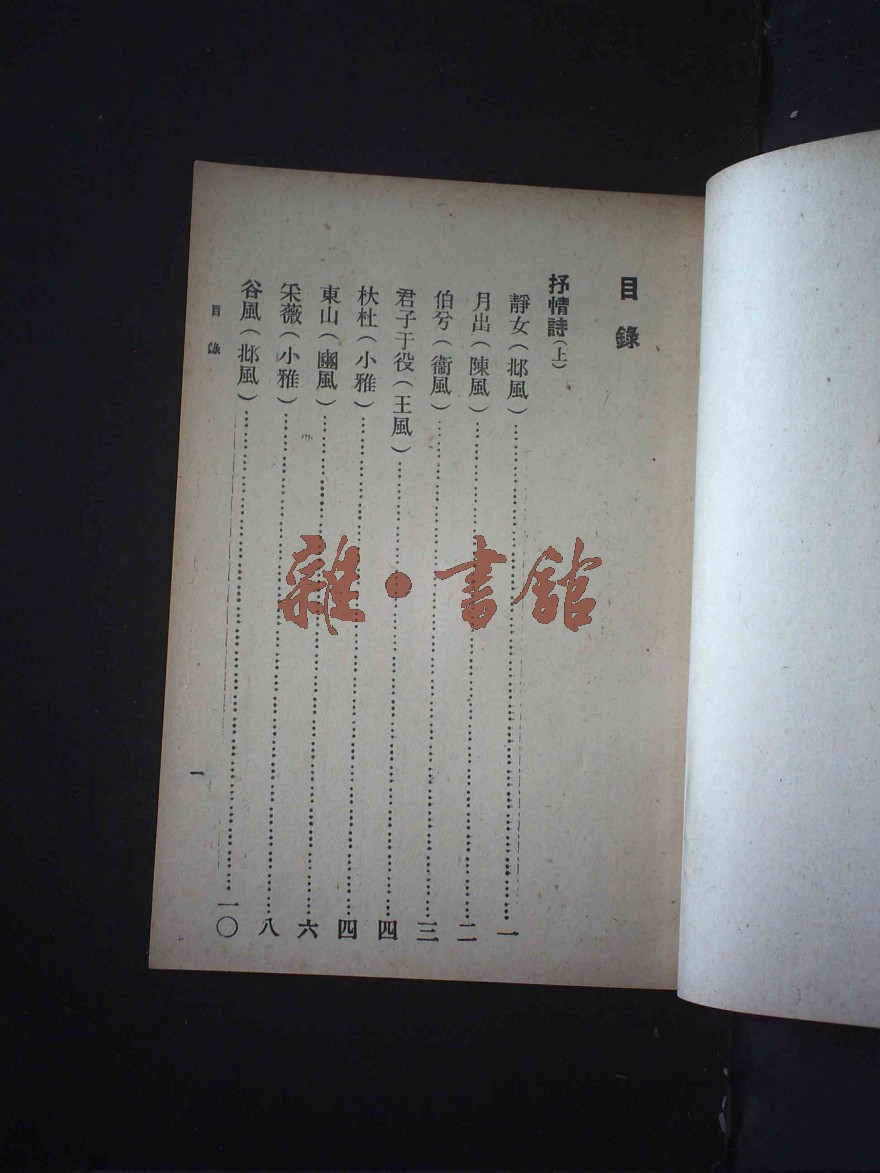 目錄
抒情詩(上)
靜女(邶風)……一
月出(陳風)……二
伯兮(衞風)……三
君子于役(王風)……四
杕杜(小雅)……四
東山(豳風)……六
采薇(小雅)……八
谷風(邶風)……一〇
目錄
一
雜·書館